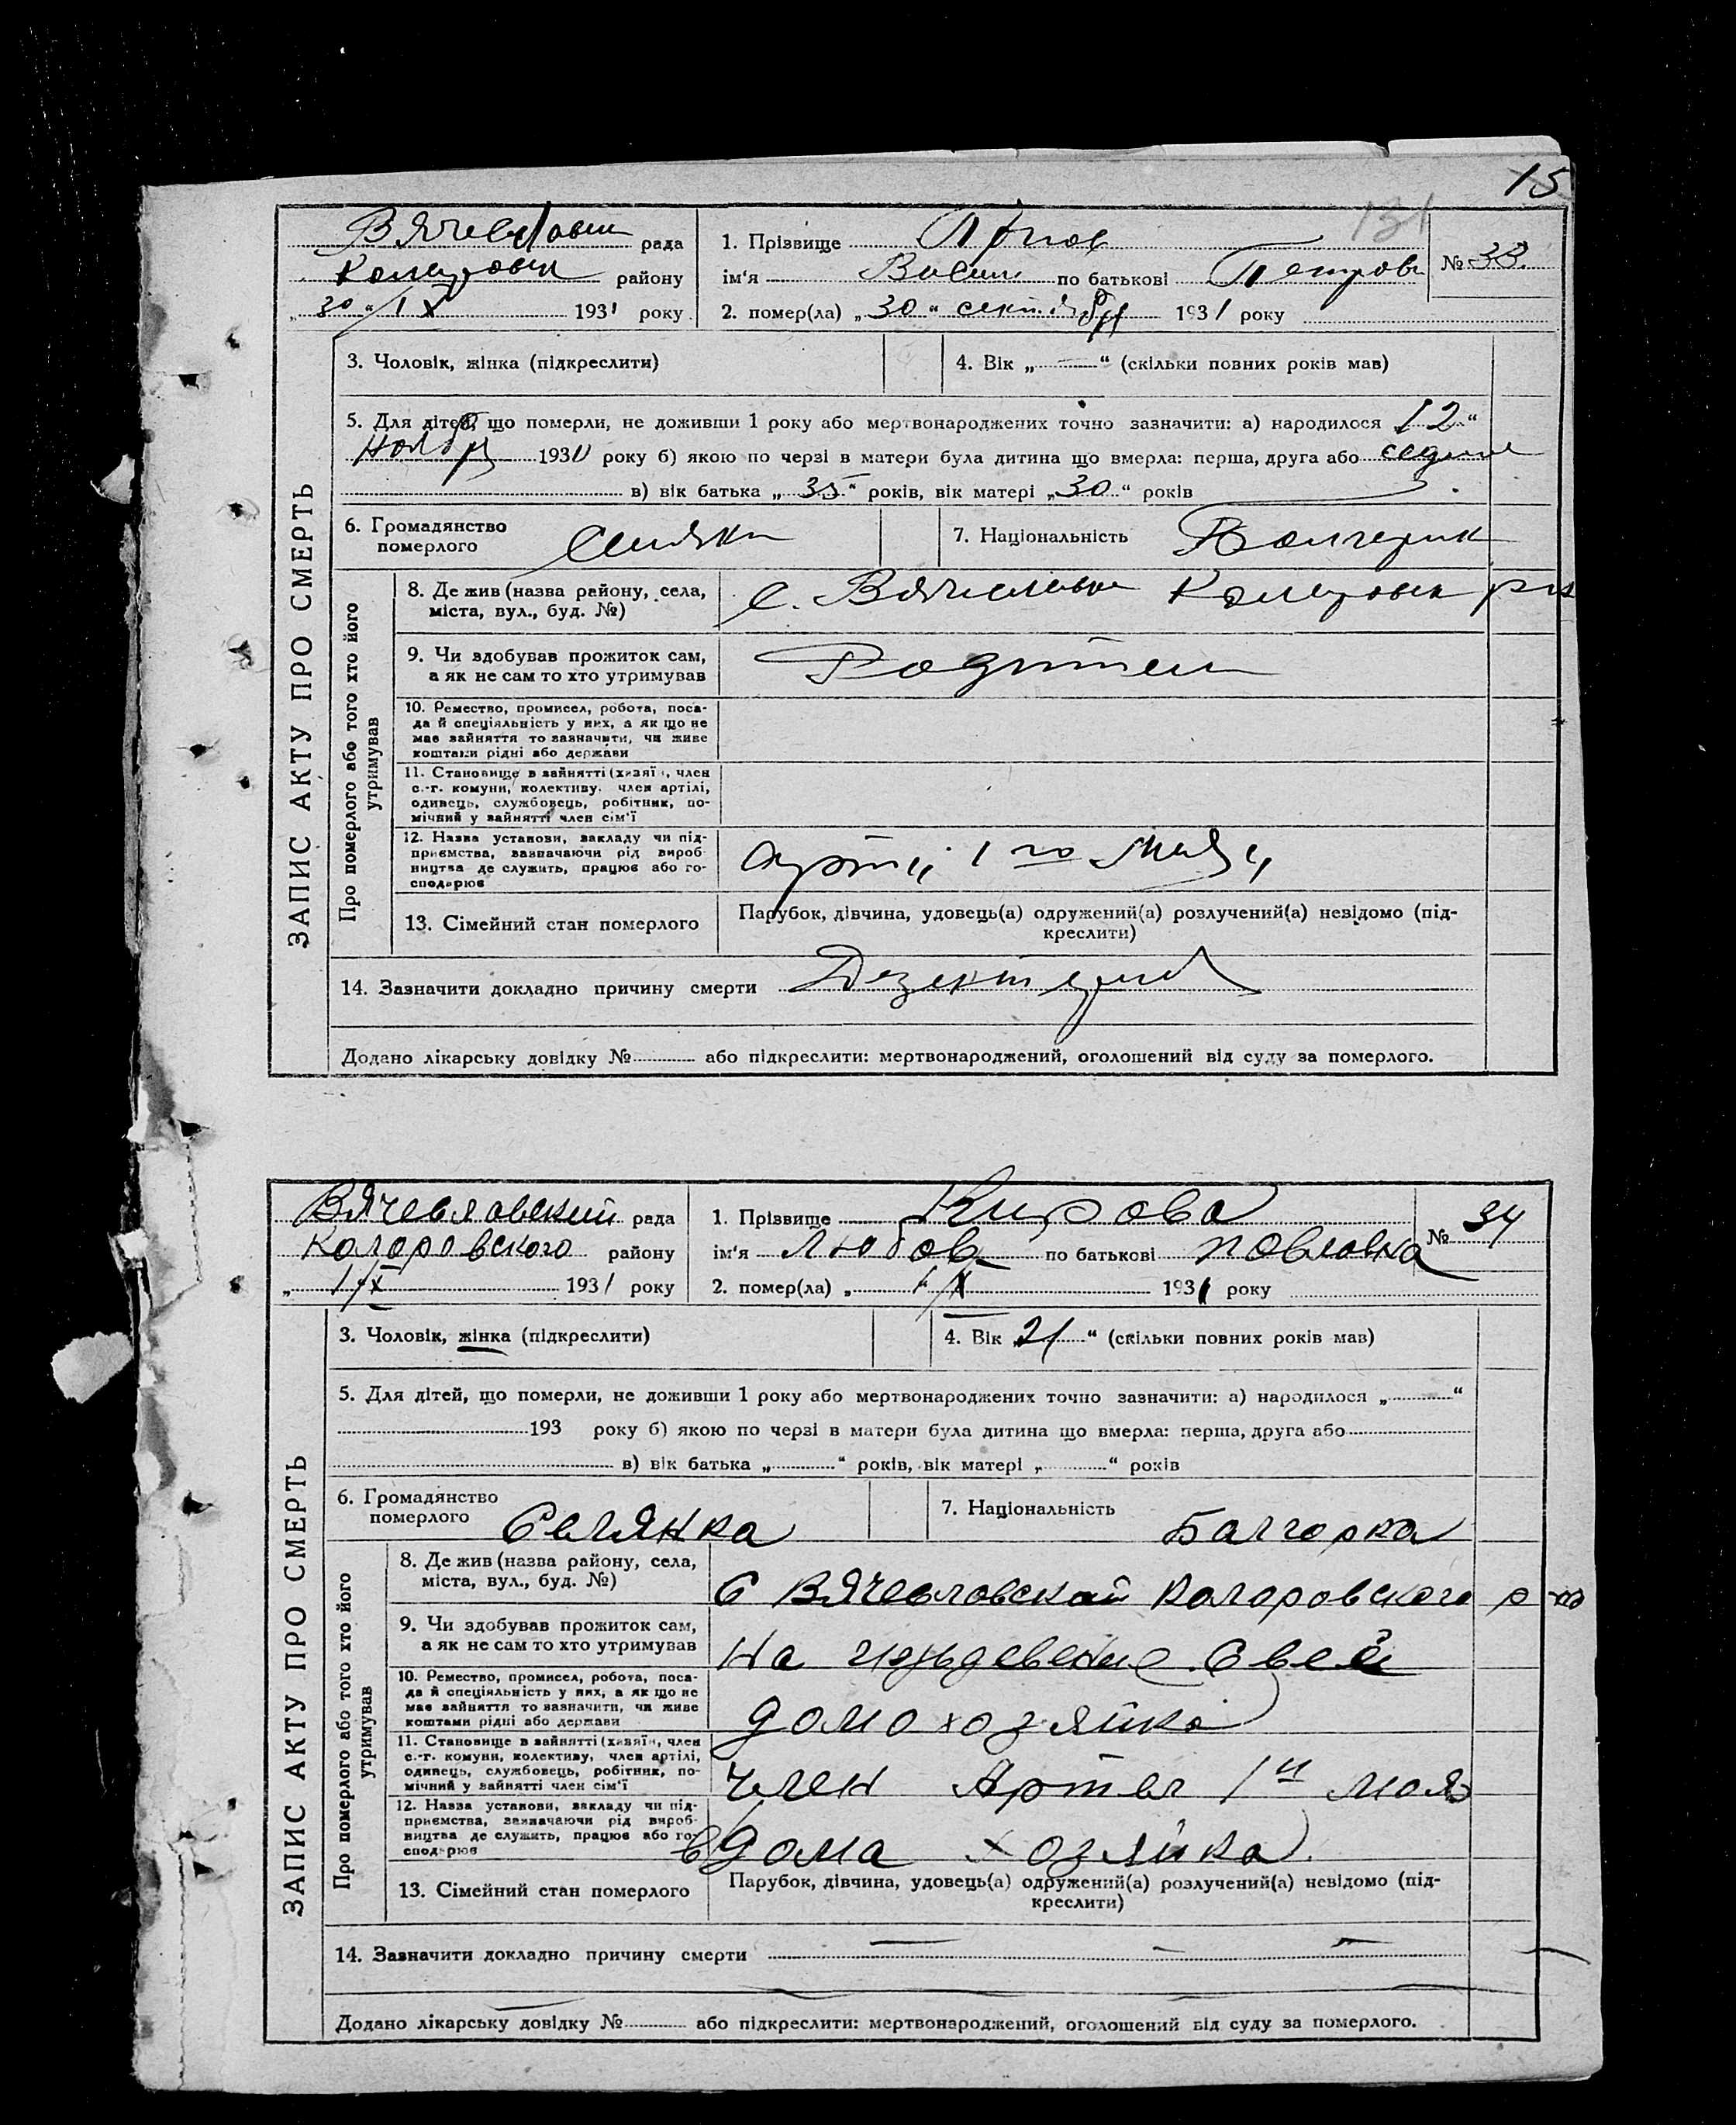 15
131
ЗАПИС АКТУ ПРО СМЕРТЬ
рада
району
30 "/IX 1931 року
1. Прізвище
ім'я по батькові Петров
№ 33.
2. помер(ла) „30" 1931 року
3. Чоловік, жінка (підкреслити)
4. Вік „ " (скільки повних років мав)
5. Для дітей, що померли, не доживши 1 року або мертвонароджених точно зазначити: а) народилося „12"
1930 року б) якою по черзі в матери була дитина що вмерла: перша, друга або
в) вік батька „35" років, вік матері „30" років
6. Громадянство
померлого
7. Національність
8. Де жив (назва району, села,
міста, вул., буд. №)
с.
Про померлого або того хто його
утримував
9. Чи здобував прожиток сам,
а як не сам то хто утримував
Родители
10. Ремество, промисел, робота, поса-
да й спеціяльність у них, а як що не
має зайняття то зазначити, чи живе
коштами рідні або держави
11. Становище в зайнятті (хазяїн, член
с.-г. комуни, колективу, член артілі,
одинець, службовець, робітник, по-
мічний у зайнятті член сім'ї
12. Назва установи, закладу чи під-
приємства, зазначаючи рід вироб-
ництва де служить, працює або го-
сподарює
1 го Мая
13. Сімейний стан померлого
Парубок, дівчина, удовець(а) одружений(а) розлучений(а) невідомо (під-
креслити)
14. Зазначити докладно причину смерти
Додано лікарську довідку № або підкреслити: мертвонароджений, оголошений від суду за померлого.
ЗАПИС АКТУ ПРО СМЕРТЬ
рада
Коларовского району
„1"/X 1931 року
1. Прізвище Кирова
ім'я Любов по батькові Повловна
№ 34
2. помер(ла) „1"/X 1931 року
3. Чоловік, жінка (підкреслити)
4. Вік „21" (скільки повних років мав)
5. Для дітей, що померли, не доживши 1 року або мертвонароджених точно зазначити: а) народилося „ "
193 року б) якою по черзі в матери була дитина що вмерла: перша, друга або
в) вік батька „ " років, вік матері „ " років
6. Громадянство
померлого
Селянка
7. Національність
Балгорка
8. Де жив (назва району, села,
міста, вул., буд. №)
С Коларовского р-на
Про померлого або того хто його
утримував
9. Чи здобував прожиток сам,
а як не сам то хто утримував
На
10. Ремество, промисел, робота, поса-
да й спеціяльність у них, а як що не
має зайняття то зазначити, чи живе
коштами рідні або держави
домохозяйка
11. Становище в зайнятті (хазяїн, член
с.-г. комуни, колективу, член артілі,
одинець, службовець, робітник, по-
мічний у зайнятті член сім'ї
член Артел 1й моя
12. Назва установи, закладу чи під-
приємства, зазначаючи рід вироб-
ництва де служить, працює або го-
сподарює
дома хозяйка
13. Сімейний стан померлого
Парубок, дівчина, удовець(а) одружений(а) розлучений(а) невідомо (під-
креслити)
14. Зазначити докладно причину смерти
Додано лікарську довідку № або підкреслити: мертвонароджений, оголошений від суду за померлого.